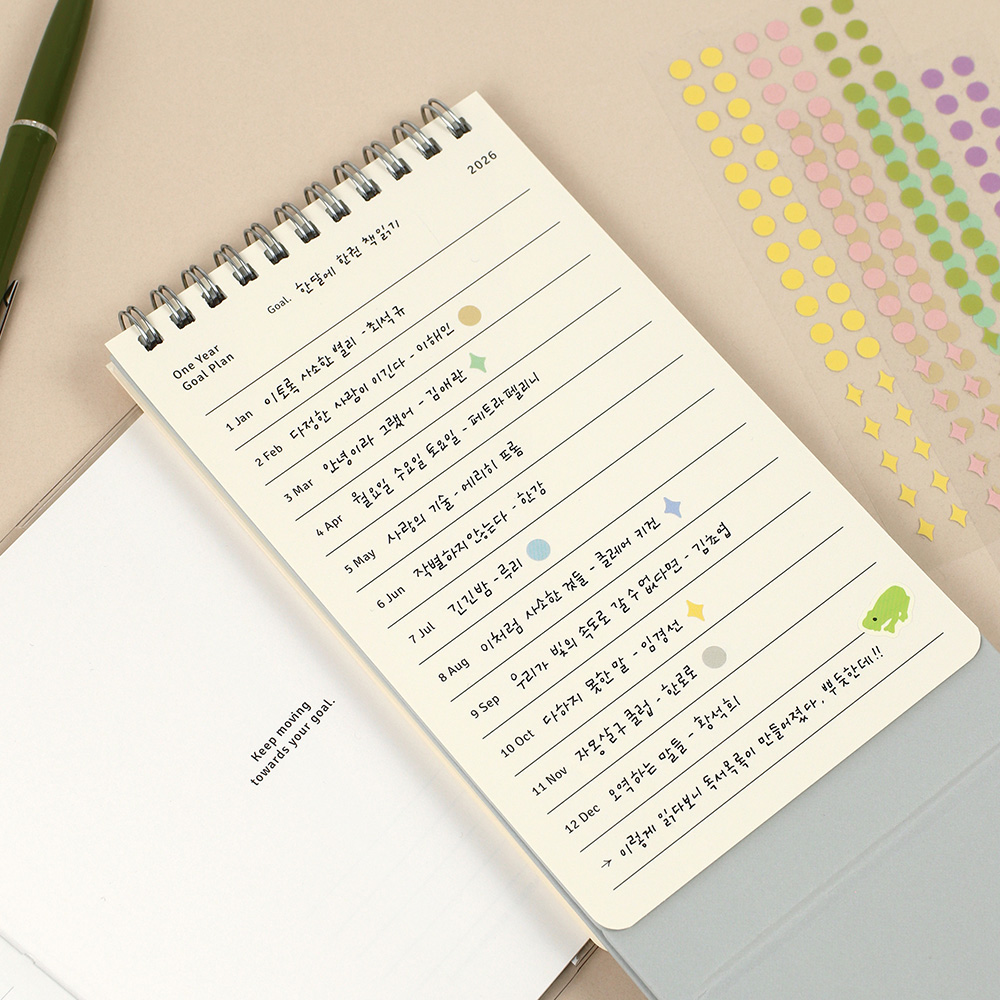 2026
One Year
Goal Plan
Goal. 한달에 한권 책읽기
1 Jan 이토록 사소한 별리 - 최석규
2 Feb 다정한 사람이 이긴다 - 이해인
3 Mar 안녕이라 그랬어 - 김애란
4 Apr 월요일 수요일 토요일 - 페트라펠리니
5 May 사랑의 기술 - 에리히 프롬
6 Jun 작별하지않는다 - 한강
7 Jul 긴긴밤 - 루리
8 Aug 이처럼 사소한 것들 - 클레어 키건
9 Sep 우리가 빛의 속도로 갈 수 없다면 - 김초엽
10 Oct 다하지 못한 말 - 임경선
11 Nov 자몽살구클럽 - 한로로
12 Dec 오역하는 말들 - 황석희
→ 이렇게 읽다보니 독서목록이 만들어졌다. 뿌듯한데!!
Keep moving
towards your goal.